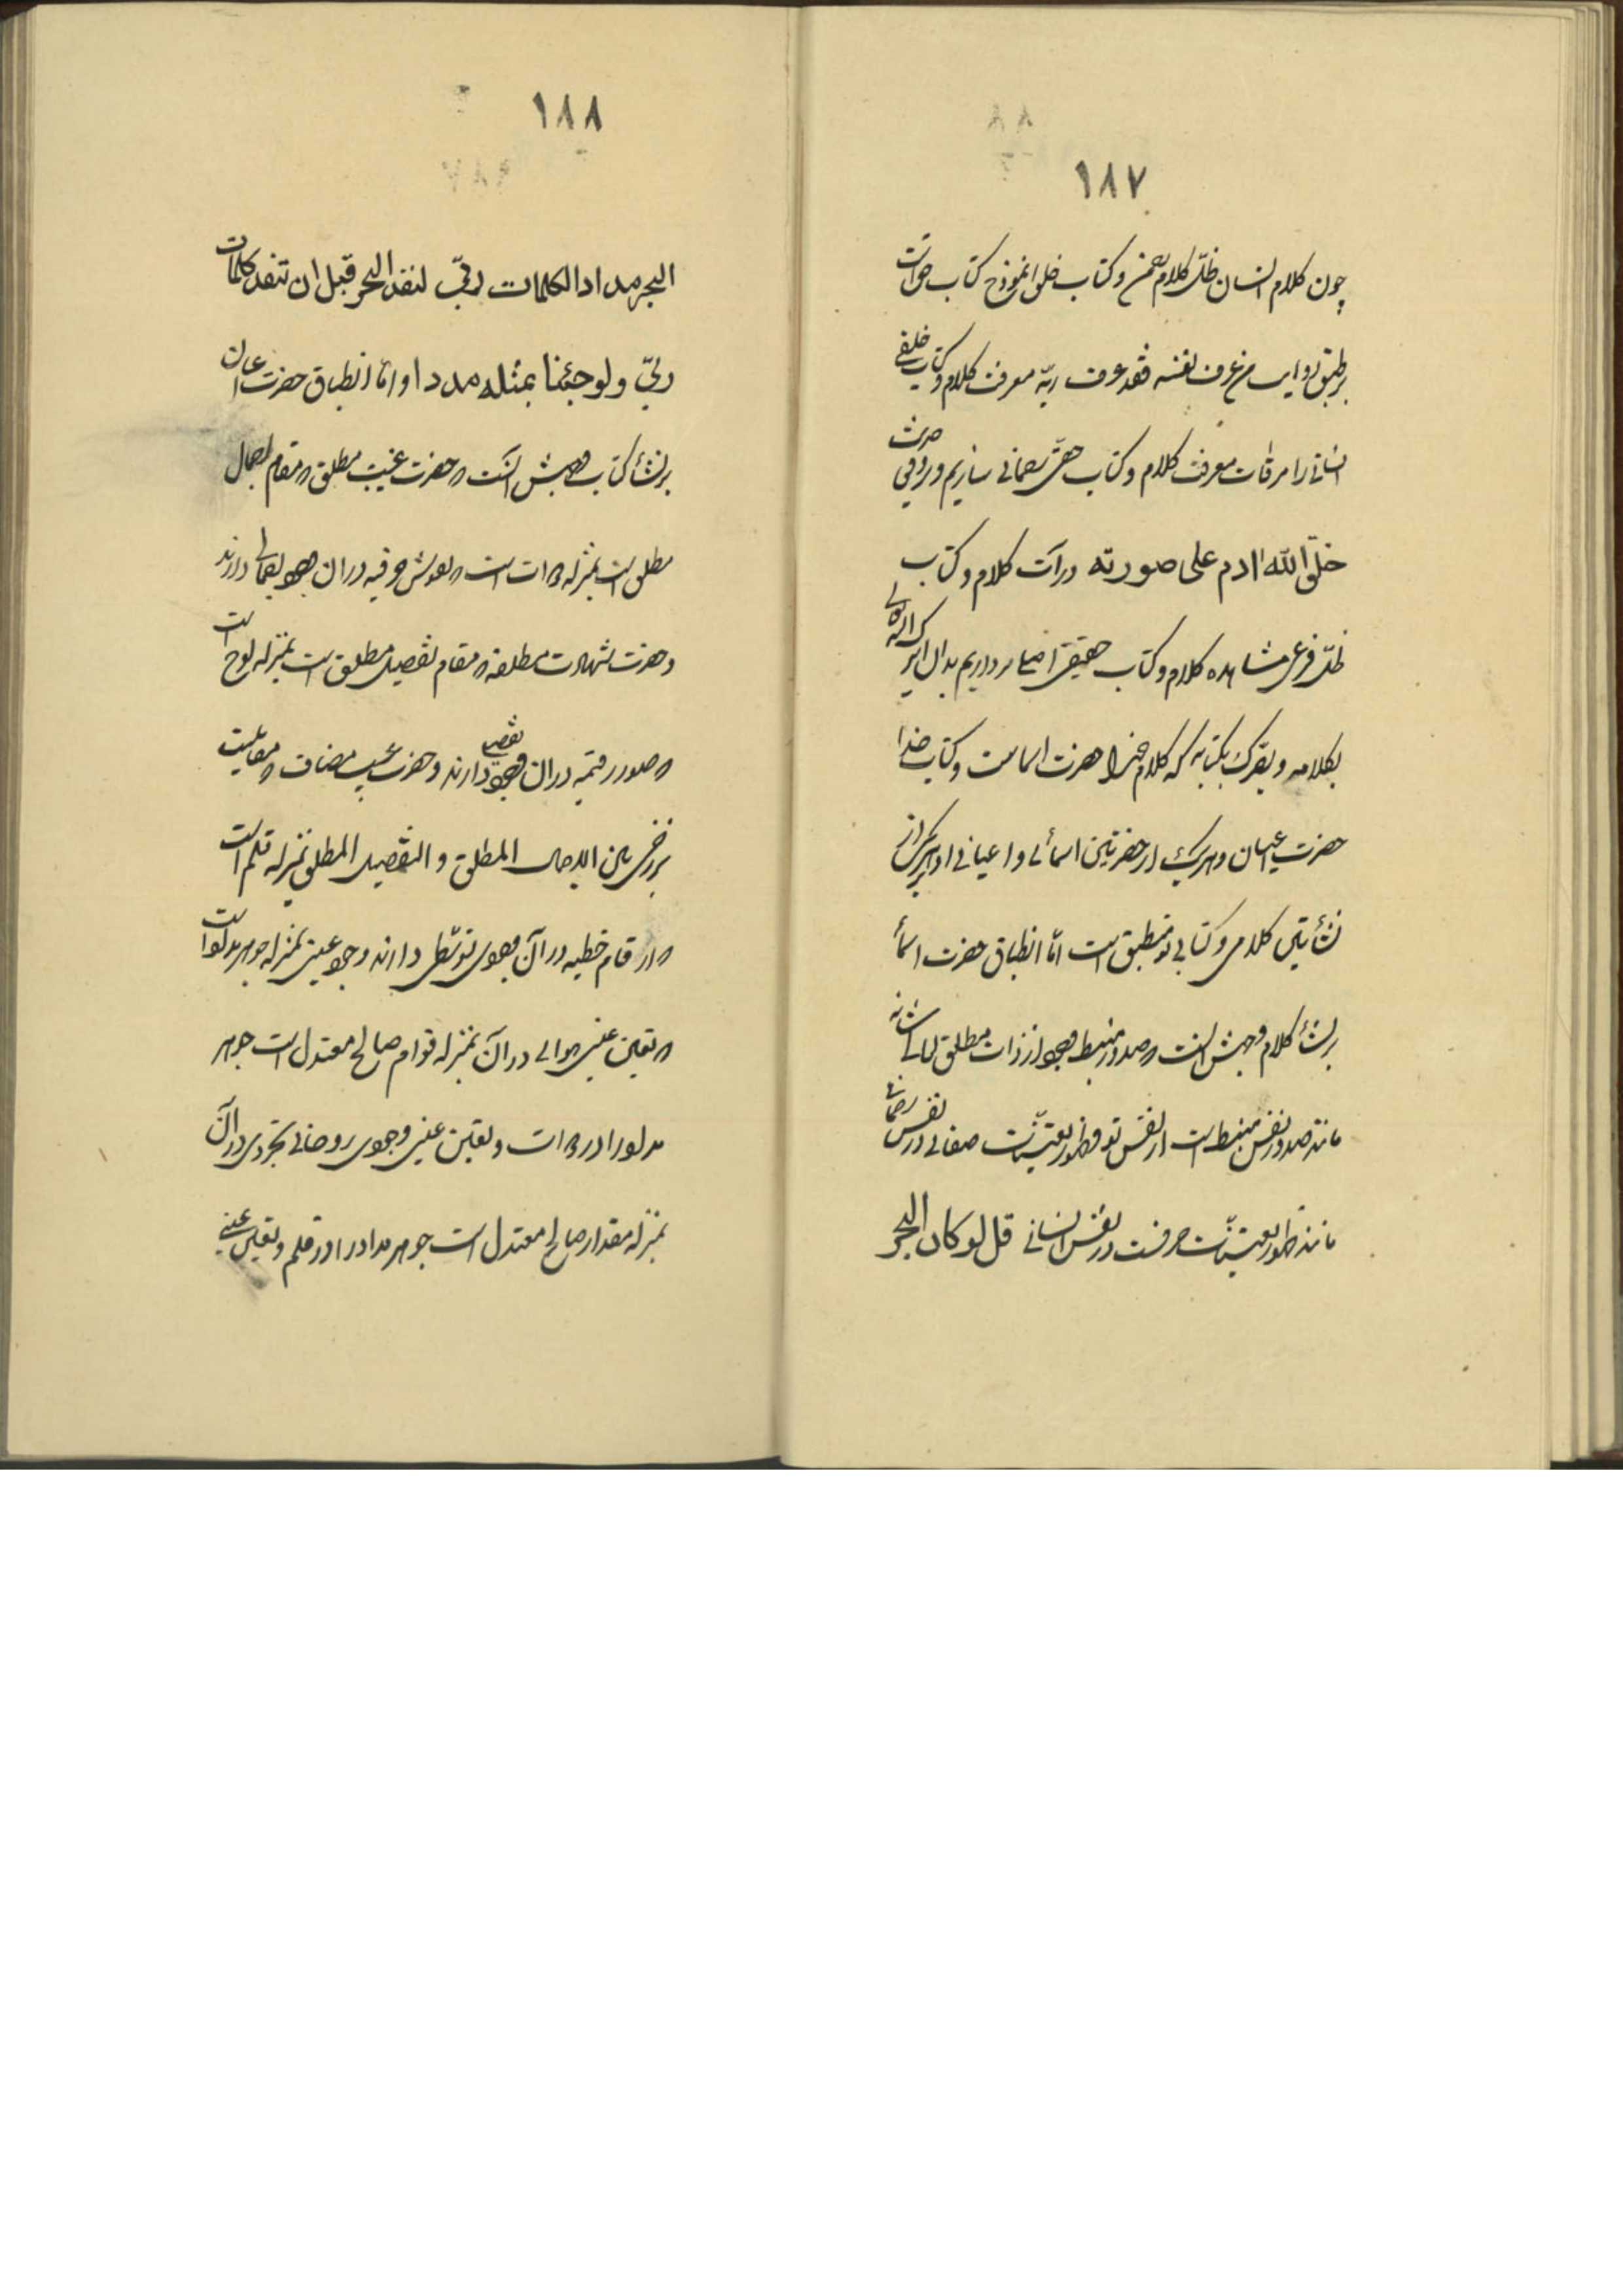 ١٨٧
چون کلام انسان ظلّ کلام رحمن و کتاب خلق انموذج کتاب حق است
بر طبق روایت من عرف نفسه فقد عرف ربّه معرفت کلام و کتاب خلقی
انسانی را مرقات معرفت کلام و کتاب حقّی سازیم و در حدیث
خلق الله ادم علی صورته درآت کلام و کتاب
ظلّی فرعی مشاهده کلام و کتاب حقیقی اصلی
بکلامه و بکتابه که کلام خدا حضرت اسماست و کتاب خدا
حضرت اعیان و هر یک از حضرتین اسمائی و اعیانی او بر یکی از
نشأتین کلامی و کتابی تو منطبق است امّا انطباق حضرت اسمأ
بر نشأ کلام وجهش آنست صدور منبسط وجود از ذات مطلق
مانند صدور نفس منبسط است از نفس تو و ظهور تعیّنات صفاتی در نفس رحمانی
مانند ظهور تعیّنات حرفیت در نفس انسانی قل لو کان البحر
١٨٨
البحر مدادا لکلمات ربّی لنفد البحر قبل ان تنفد کلمات
ربّی و لو جئنا بمثله مددا و امّا انطباق حضرت اعیان
بر نشأ کتاب وجهش آنکه حضرت غیب مطلق مقام اجمال
مطلق است بمنزله دوات است نقوش حرفیه در ان وجود اجمالی دارند
و حضرت شهادت مطلقه مقام تفصیل مطلق است بمنزله لوح است
صور رقمیه در ان وجود تفصیلی دارند و حضرت غیب مضاف مقامیست
برزخی بین الاجمال المطلق و التفصیل المطلق بمنزله قلم است
ارقام خطیه در آن وجودی توسّطی دارند وجود عینی بمنزله جوهر مداد است
تعین عینی در آن بمنزله قوام صالح معتدل است جوهر
مداد را در دوات و تعین عینی وجودی روحانی تجردی در آن
بمنزله مقدار صالح معتدل است جوهر مداد را در قلم و تعین عینی